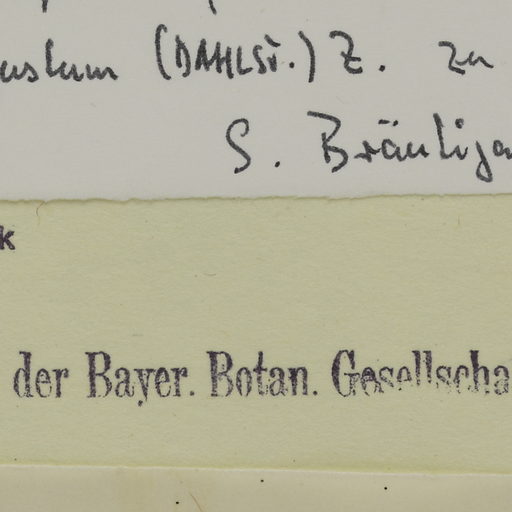 (DAHLST.) Z. zu
S. Bräutigam
k
der Bayer. Botan. Gesellscha